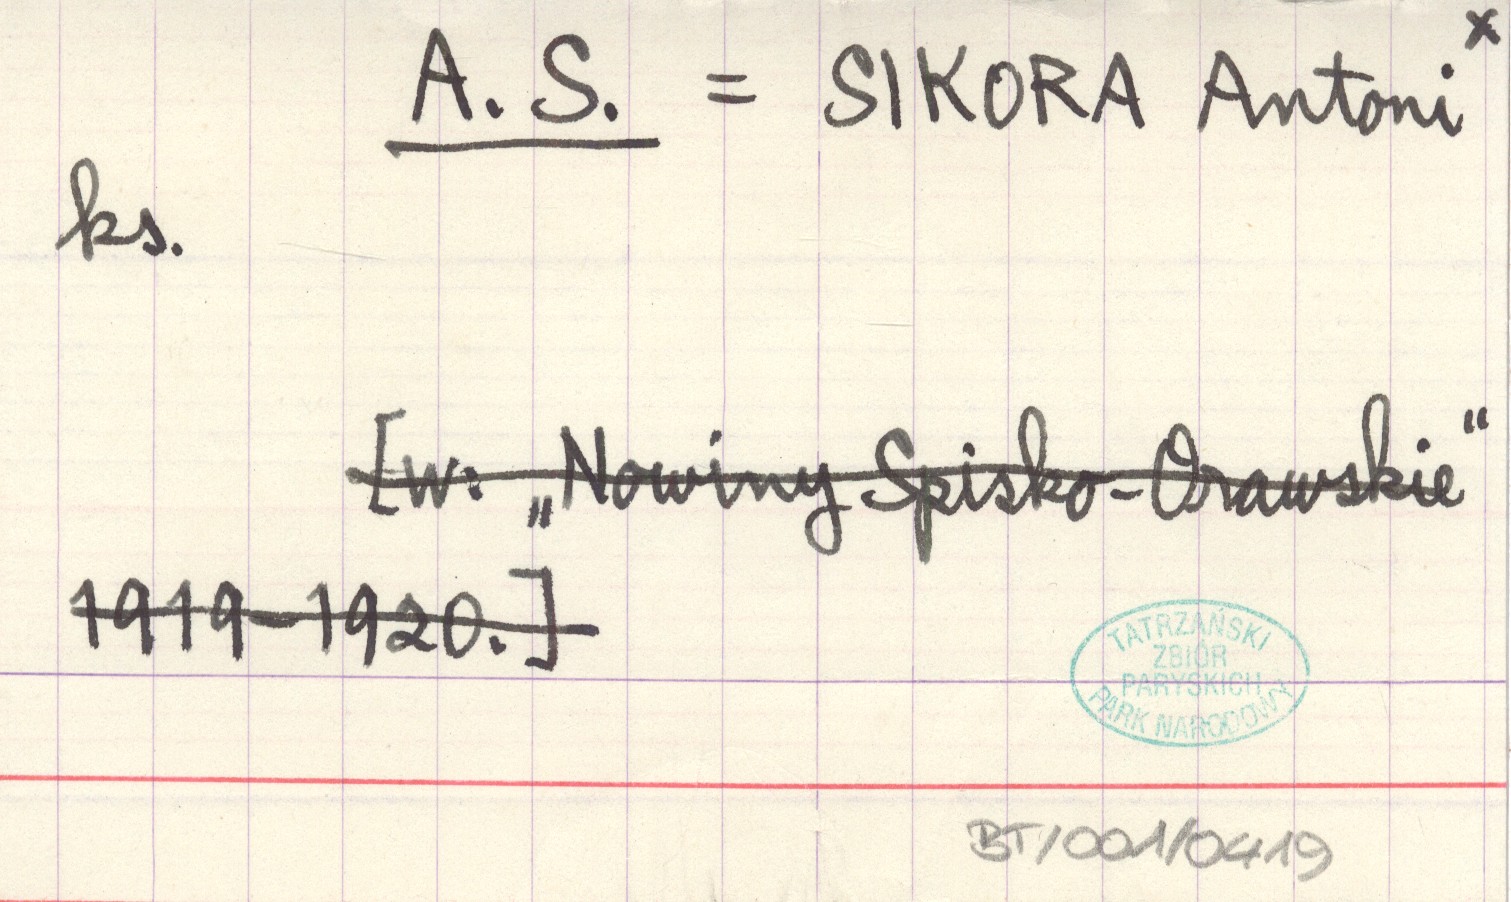 A. S. = SIKORA Antoni x
ks.
[w: „Nowiny Spisko-Orawskie"
1919-1920.]
TATRZAŃSKI
ZBIÓR
PARYSKICH
PARK NARODOWY
BT/001/0419